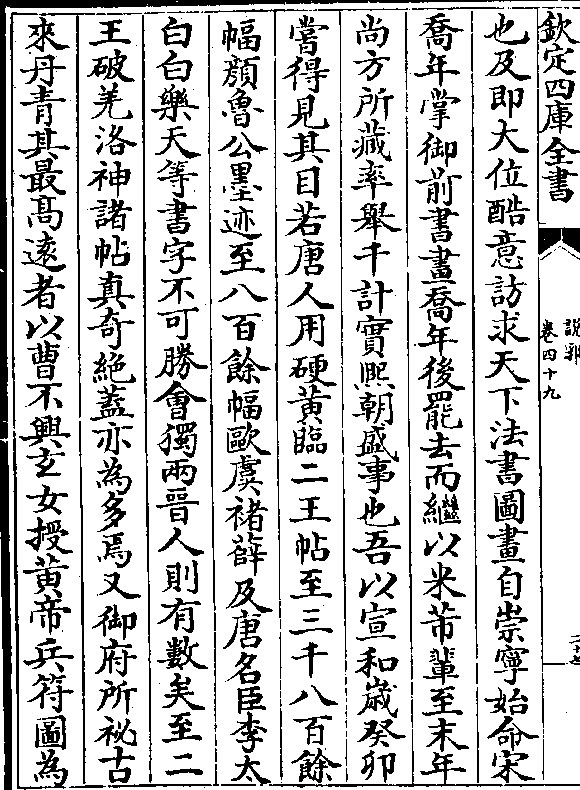 欽定四庫全書
說郛
卷四十九
也及即大位酷意訪求天下法書圖畫自崇寧始命宋
喬年掌御前書畫喬年後罷去而繼以米芾輩至末年
尚方所藏率舉千計實熙朝盛事也吾以宣和歲癸卯
嘗得見其目若唐人用硬黄臨二王帖至三千八百餘
幅顔魯公墨迹至八百餘幅歐虞褚薛及唐名臣李太
白白樂天等書字不可勝㑹獨兩晉人則有數矣至二
王破羌洛神諸帖真奇絶蓋亦為多焉又御府所祕古
來丹青其最髙逺者以曹不興𤣥女授黄帝兵符圖為